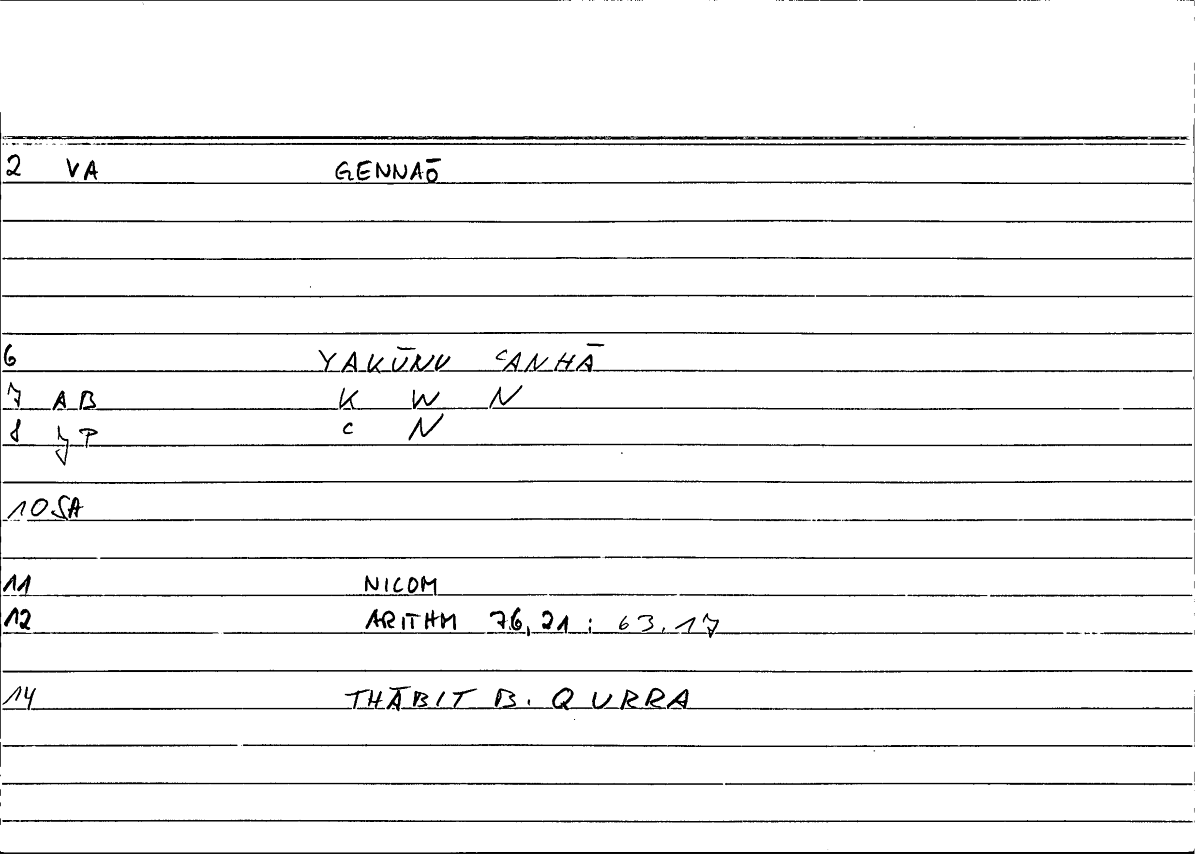 2 VA GENNAŌ
6 YAKŪNU ʿANHĀ
7 AB K W N
8 JP ʿ N
10 SA
11 NICOM
12 ARITHM 76,21 : 63.17
14 THĀBIT B. QURRA